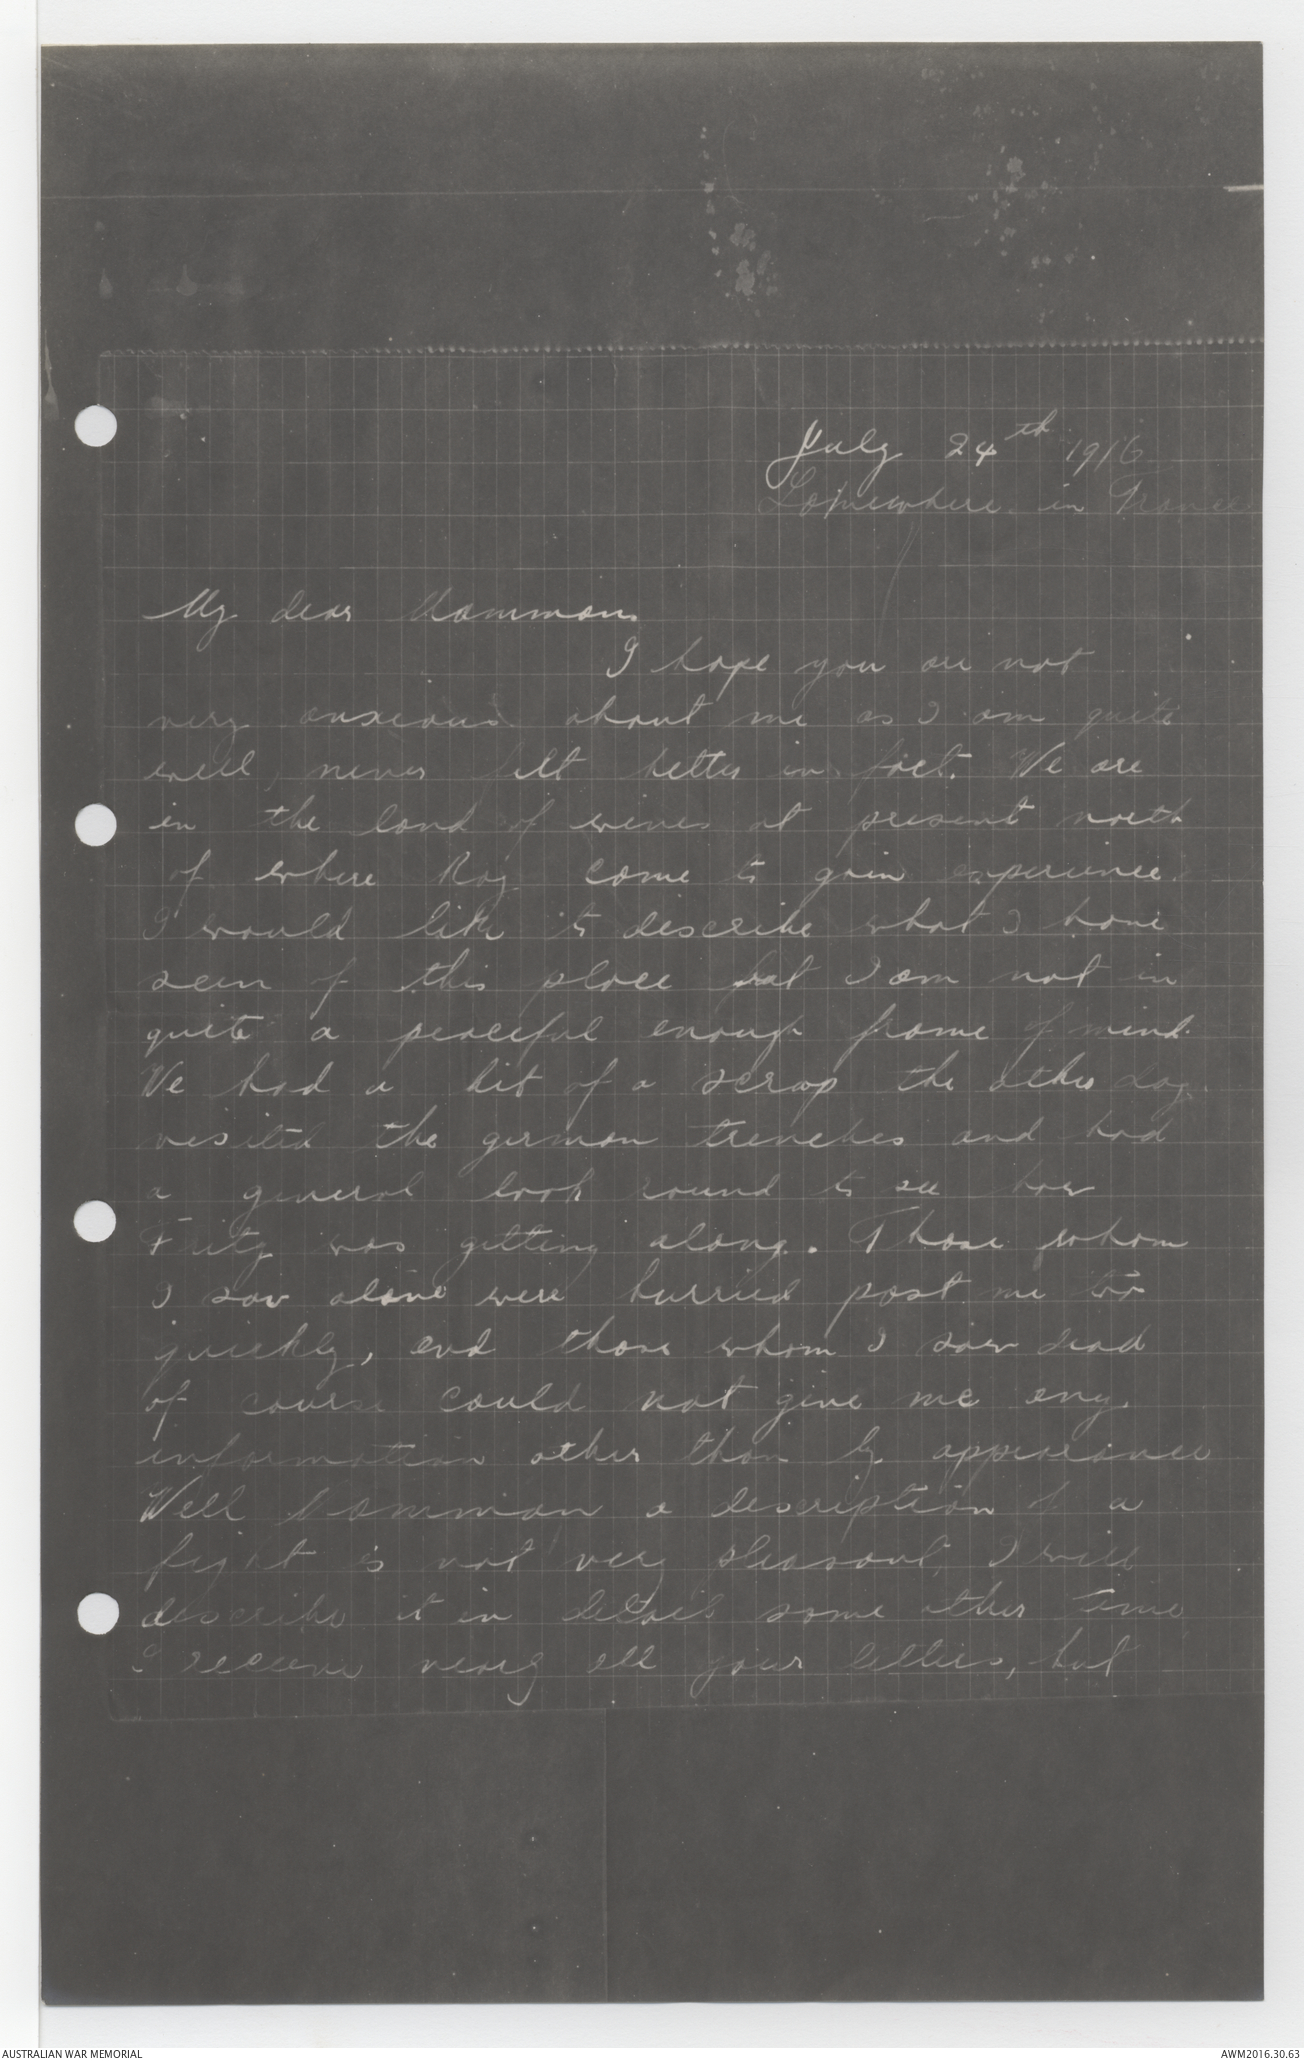 July 24th 1916
Somewhere in France
My dear Mamman
I hope you are not
very anxious about me as I am quite
well, never felt better in fact. We are
in the land of wines at present north
of where Roy came to gain experience.
I would like to describe what I have
seen of this place but I am not in
quite a peaceful enough frame of mind.
We had a bit of a scrap the other day,
visited the german trenches and had
a general look round to see how
Fritz was getting along. Those whom
I saw alive were hurried past me too
quickly, and those whom I saw dead
of course could not give me any
information other than by appearance
Well Mamman a description of a
fight is not very pleasant, I will
describe it in detail some other time
I receive nearly all your letters, but
AUSTRALIAN WAR MEMORIAL
AWM2016.30.63